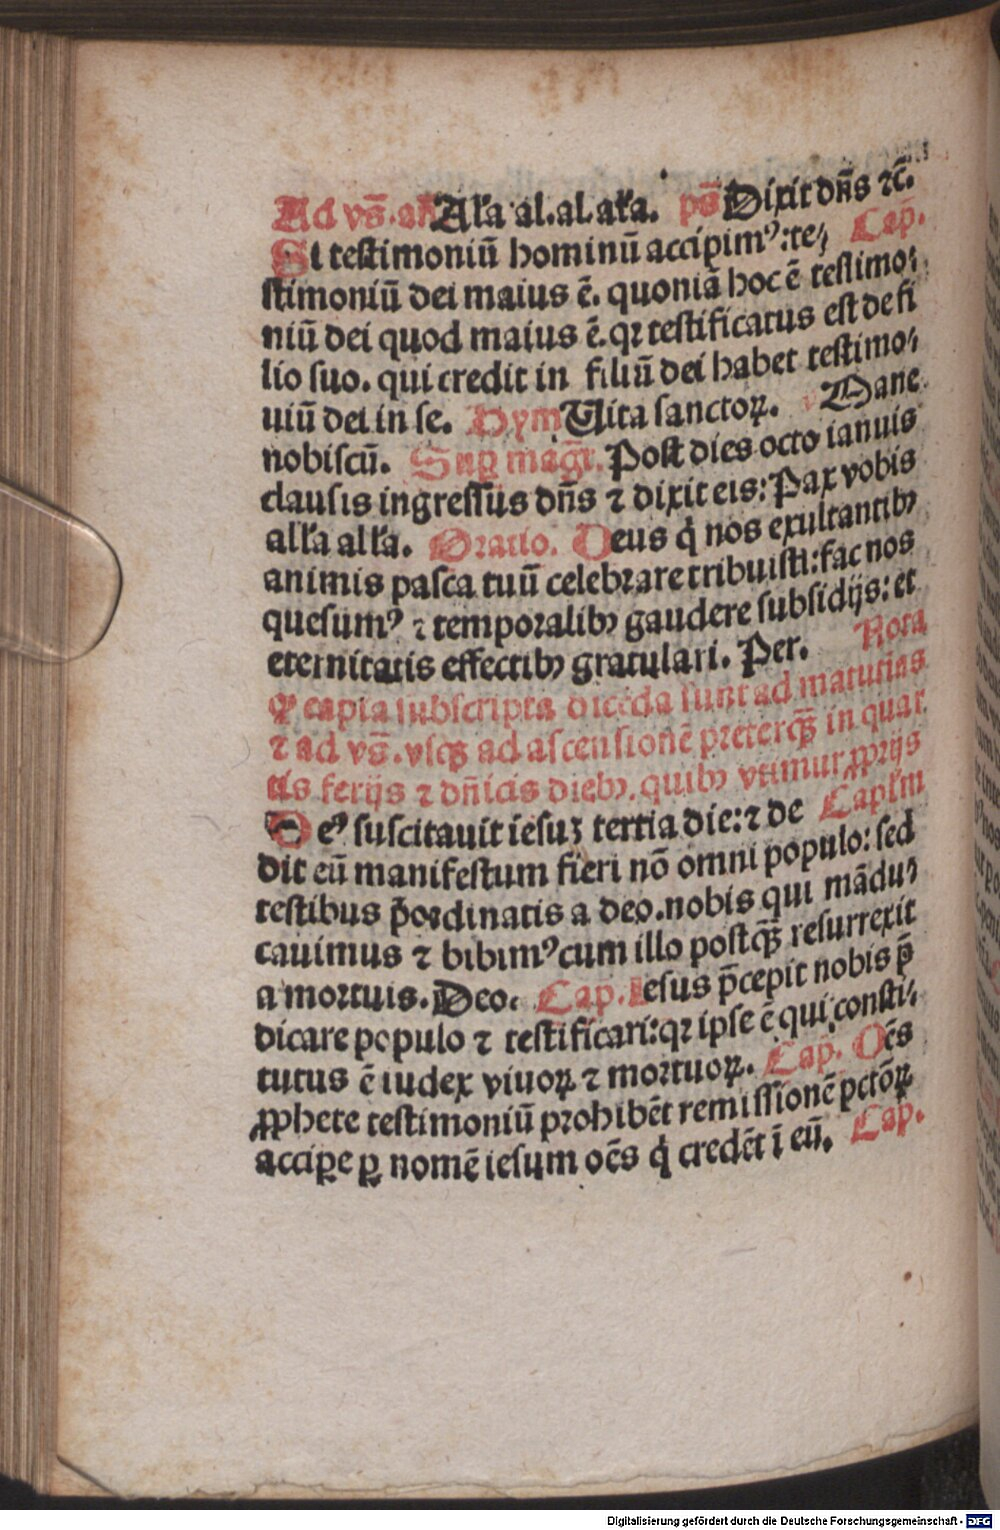 Ad vs̄. an̄ Alľa al. al. alľa. ps̄ Dixit dn̄s ⁊c̄.
Si testimoniū hominū accipimꝰ: te⸗ Cap̄.
stimoniū dei maius ē. quoniā hoc ē testimo⸗
niū dei quod maius ē. qꝛ testificatus est de fi
lio suo. qui credit in filiū dei habet testimo⸗
uiū dei in se. Hym Uita sanctoꝝ. Mane
nobiscū. Suꝑ magr̄. Post dies octo ianuis
clausis ingressus dn̄s ⁊ dixit eis: Pax vobis
alľa alľa. Oratio. Deus q̇ nos exultantibꝰ
animis pasca tuū celebꝛare tribuisti: fac nos
quesumꝰ ⁊ tempoꝛalibꝰ gaudere subsidijs: et
eternitatis effectibꝰ gratulari. Per. Nota
ꝙ capla subscripta dicēda sunt ad matutias
⁊ ad vs̄. vsqꝫ ad ascensionē pretercꝙ̄ in quar
tis ferijs ⁊ dn̄icis diebꝰ. quibꝰ vtimur ꝓprijs
Deꝰ suscitauit iesuꝫ tertia die: ⁊ de Capľm
dit eū manifestum fieri nō omni populo: sed
testibus p̄oꝛdinatis a deo. nobis qui mādu⸗
cauimus ⁊ bibimꝰ cum illo postꝙ̄ resurrexit
a moꝛtuis. Deo. Cap. Iesus p̄cepit nobis p̄
dicare populo ⁊ testificari: qꝛ ipse ē qui consti⸗
tutus ē iudex viuoꝝ ⁊ moꝛtuoꝝ. Cap̄. Oēs
ꝓphete testimoniū pꝛohibēt remissionē pctōꝝ
acciꝑe ꝑ nomē iesum oēs q̇ credēt ī eū. Cap.
Digitalisierung gefördert durch die Deutsche Forschungsgemeinschaft - DFG